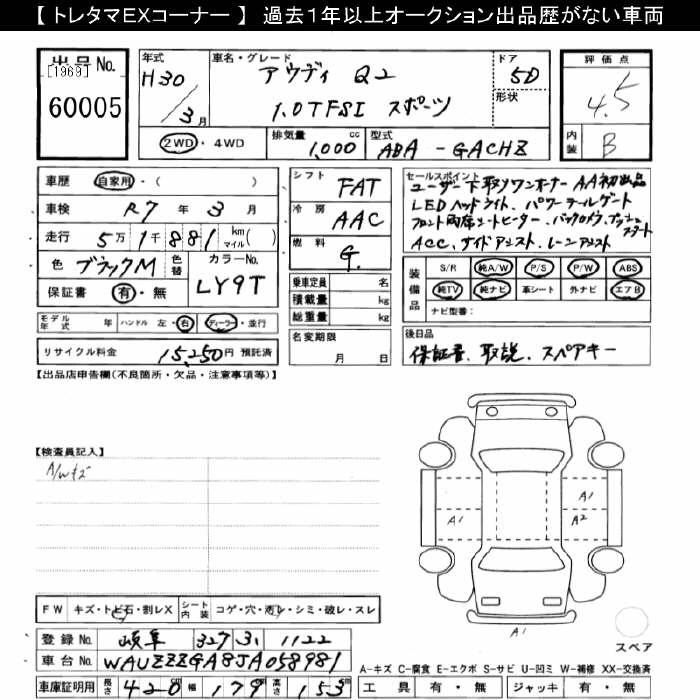 【 トレタマEXコーナー 】 過去1年以上オークション出品歴がない車両
出品No.
[1969]
60005
年式
H30
/3月
車名・グレード
アウディ Q2
1.0TFSI スポーツ
ドア
5D
形状
2WD・4WD
排気量
1,000 cc
型式
ABA - GACHZ
評価点
4.5
内装
B
車歴 自家用・( )
車検 R7年 3月
走行 5万1千881 km マイル( )
色 ブラックM 色替
カラーNo.
LY9T
保証書 有・無
シフト
FAT
冷房
AAC
燃料
G.
乗車定員 名
積載量 kg
総重量 kg
セールスポイント
ユーザー下取りワンオーナー AA初出品
LEDヘッドライト、パワーテールゲート
フロント両席シートヒーター、バックカメラ、プッシュスタート
ACC、サイドアシスト、レーンアシスト
装備品
S/R 純A/W P/S P/W ABS
純TV 純ナビ 革シート 外ナビ エアB
ナビ型番:
モデル年式 年 ハンドル 左・右 ディーラー・並行
リサイクル料金 15,250円 預託済
名変期限
月 日
後日品
保証書、取説、スペアキー
【出品店申告欄(不良箇所・欠品・注意事項等)】
【検査員記入】
A/Wキズ
A1
A1
A2
A1
スペア
FW キズ・トビ石・割レX
シート内装 コゲ・穴・汚レ・シミ・破レ・スレ
登録No. 岐阜 327 3 1122
車台No. WAUZZZGA8JA058981
車庫証明用 長さ 420 cm 幅 179 cm 高さ 153 cm
A-キズ C-腐食 E-エクボ S-サビ U-凹ミ W-補修 XX-交換済
工具 有・無 ジャッキ 有・無